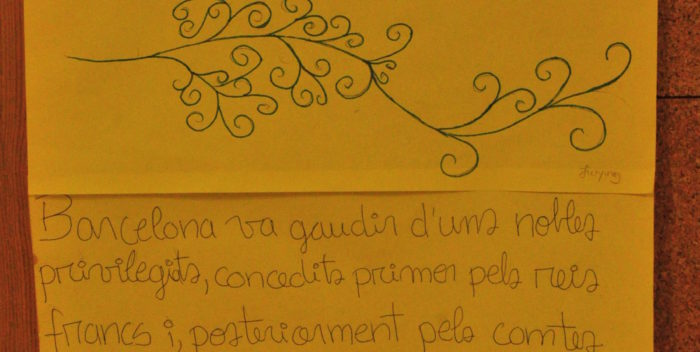 Barcelona va gaudir d'uns nobles
privilegits, concedits primer pels reis
francs i, posteriorment pels comtes